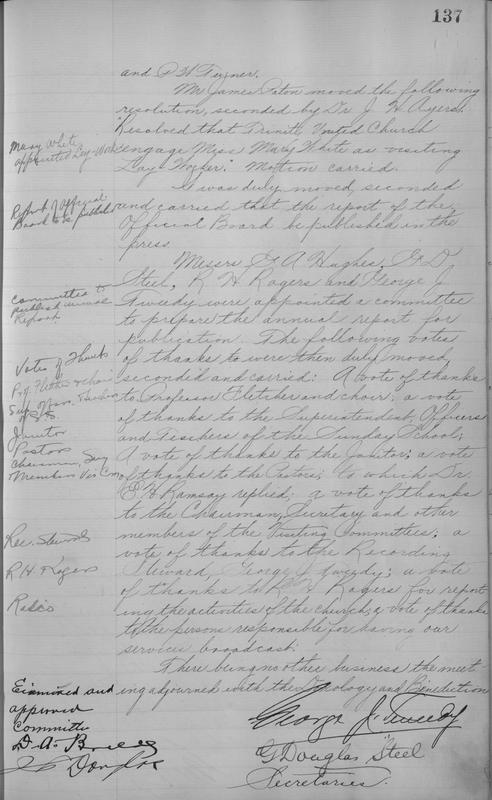 137
and P H
Mr James Paton moved the following
resolution, seconded by Dr J. H. Ayers.
"Resolved that Trinity United Church
engage Miss Mary White as visiting
Lay Worker." Motion carried.
Mary White
appointed Lay
It was duly moved, seconded
and carried that the report of the
Official Board be published in the
press
Report of Official
Board to be published
Messrs F. A Hughes, G. D
Steel, R. H. Rogers and George J.
Tweedy were appointed a committee
to prepare the annual report for
publication. The following votes
of thanks to were then duly moved
seconded and carried: A vote of thanks
to Professor Fletcher and choir; a vote
of thanks to the Superintendent, Officers
and Teachers of the Sunday School;
A vote of thanks to the Janitor; a vote
of thanks to the Pastors; to which Dr.
E. H. Ramsay replied; a vote of thanks
to the Chairman, Secretary and other
members of the Visiting Committees; a
vote of thanks to the Recording
Steward, George J. Tweedy; a vote
of thanks to R. H Rogers for report
ing the activities of the church; a vote of thanks
to the persons responsible for having our
services broadcast.
Committee to
publish annual
Report
Votes of Thanks
Prof. Fletcher & choir
Janitor
Pastors
Chairman, Secy
Members Vis Com
Rec. Steward
R H Rogers
Radio
There being no other business the meet
ing adjourned with the Doxology and Benediction
George J. Tweedy
G Douglas Steel
Secretaries.
Examined and
approved
Committee